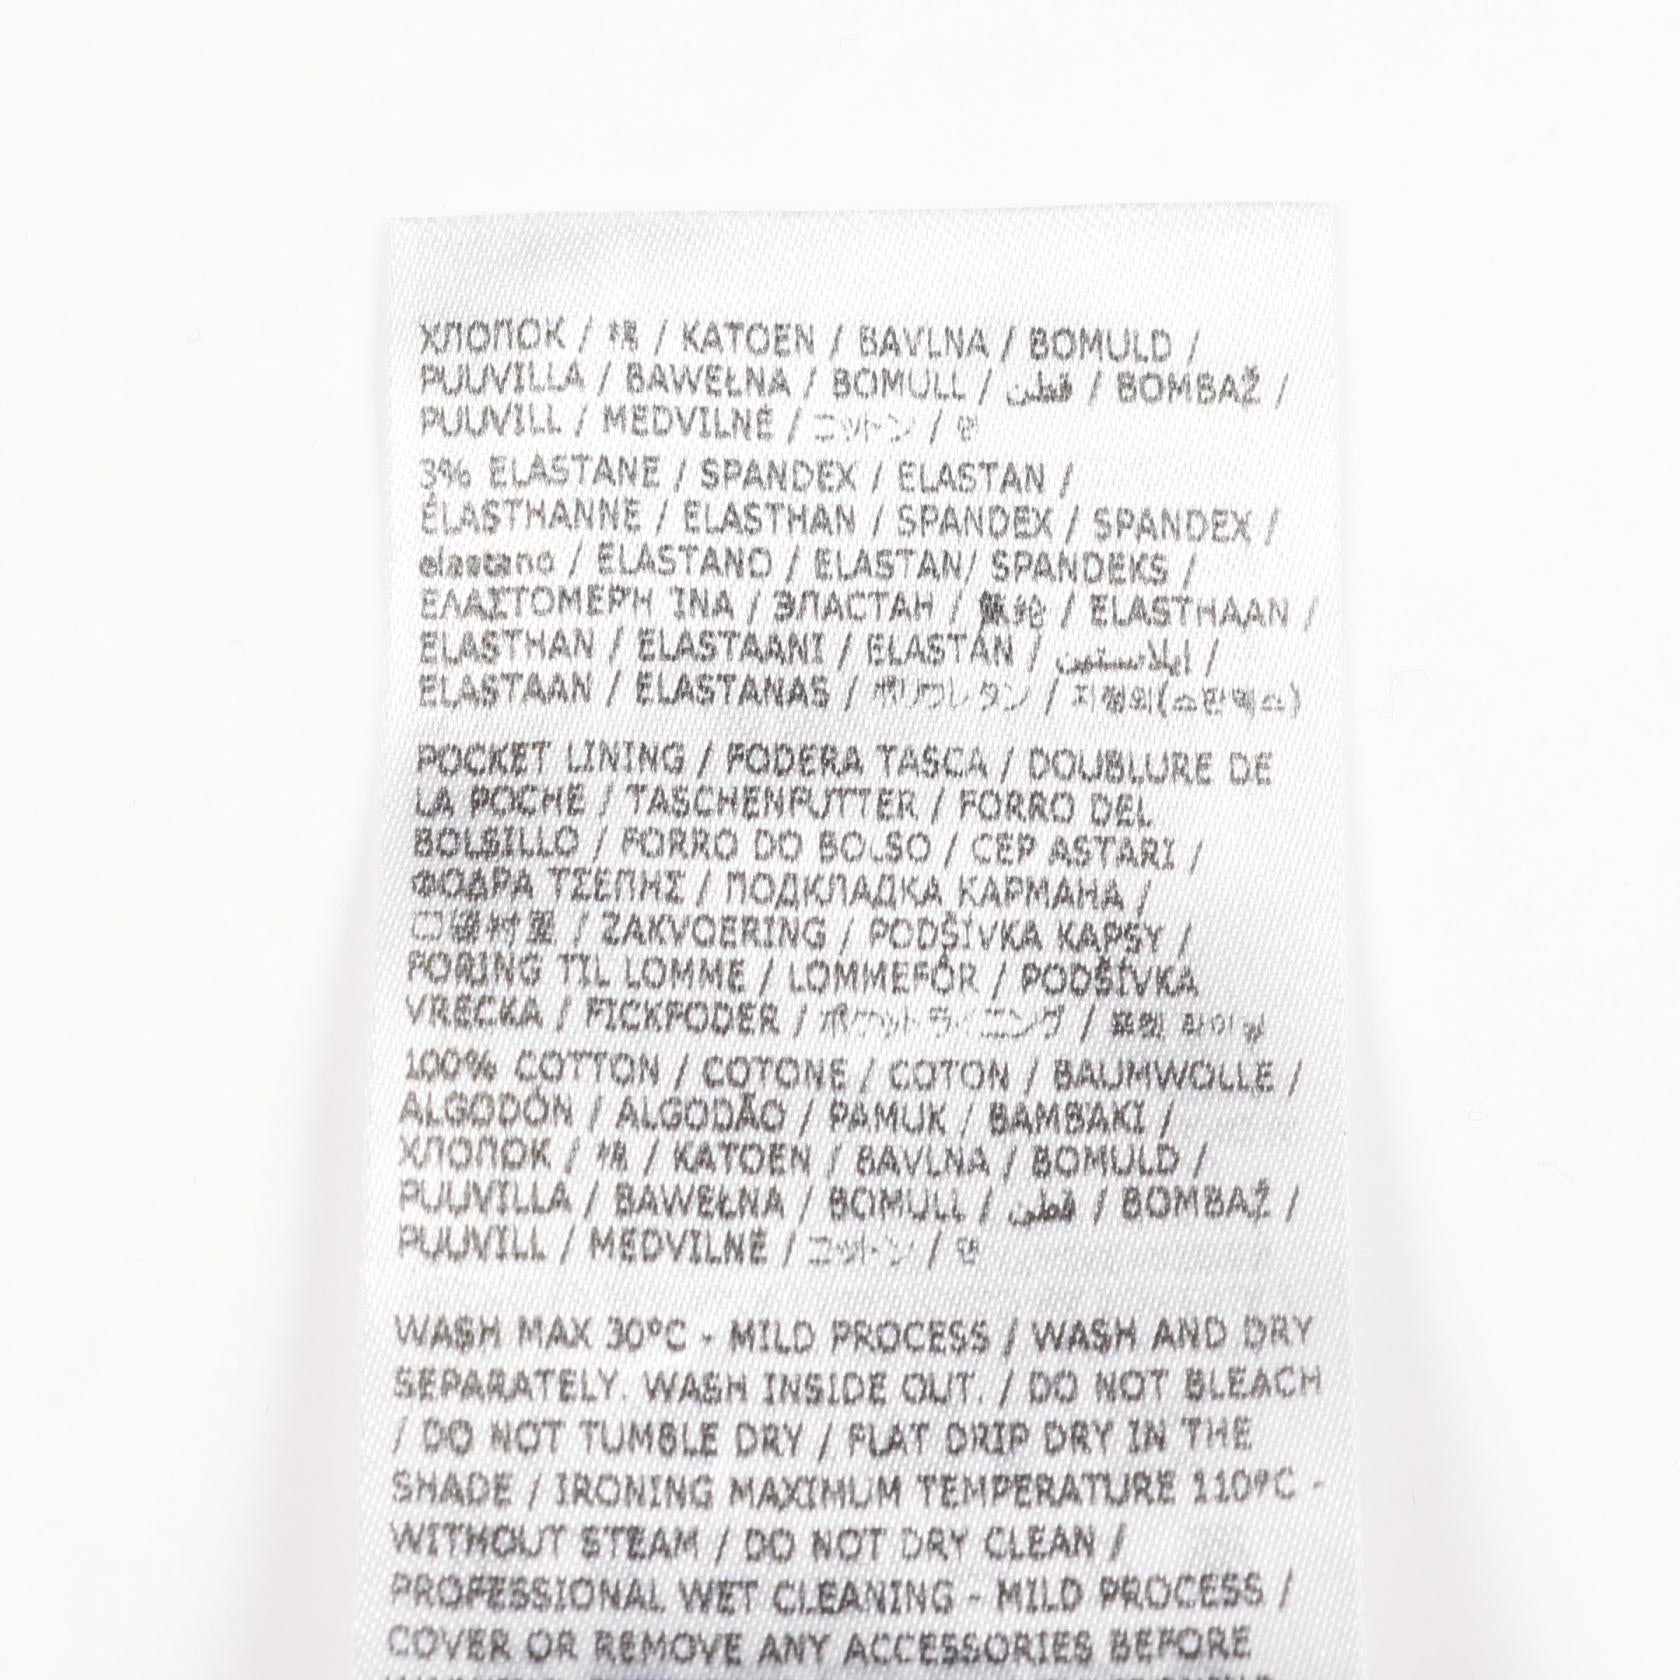 ХЛОПОК / 棉 / KATOEN / BAVLNA / BOMULD /
PUUVILLA / BAWEŁNA / BOMULL / قطن / BOMBAŽ /
PUUVILL / MEDVILNĖ / コットン / 면
3% ELASTANE / SPANDEX / ELASTAN /
ÉLASTHANNE / ELASTHAN / SPANDEX / SPANDEX /
elastano / ELASTANO / ELASTAN/ SPANDEKS /
ΕΛΑΣΤΟΜΕΡΉ ΊΝΑ / ЭЛАСТАН / 氨纶 / ELASTHAAN /
ELASTHAN / ELASTAANI / ELASTÁN / إيلاستين /
ELASTAAN / ELASTANAS / ポリウレタン / 지정외(스판덱스)
POCKET LINING / FODERA TASCA / DOUBLURE DE
LA POCHE / TASCHENFUTTER / FORRO DEL
BOLSILLO / FORRO DO BOLSO / CEP ASTARI /
ΦΟΔΡΑ ΤΣΕΠΗΣ / ПОДКЛАДКА КАРМАНА /
口袋衬里 / ZAKVOERING / PODŠÍVKA KAPSY /
FORING TIL LOMME / LOMMEFÔR / PODŠÍVKA
VRECKA / FICKFODER / ポケットライニング / 포켓 라이닝
100% COTTON / COTONE / COTON / BAUMWOLLE /
ALGODÓN / ALGODÃO / PAMUK / BAMBAKI /
ХЛОПОК / 棉 / KATOEN / BAVLNA / BOMULD /
PUUVILLA / BAWEŁNA / BOMULL / قطن / BOMBAŽ /
PUUVILL / MEDVILNĖ / コットン / 면
WASH MAX 30°C - MILD PROCESS / WASH AND DRY
SEPARATELY. WASH INSIDE OUT. / DO NOT BLEACH
/ DO NOT TUMBLE DRY / FLAT DRIP DRY IN THE
SHADE / IRONING MAXIMUM TEMPERATURE 110°C -
WITHOUT STEAM / DO NOT DRY CLEAN /
PROFESSIONAL WET CLEANING - MILD PROCESS /
COVER OR REMOVE ANY ACCESSORIES BEFORE